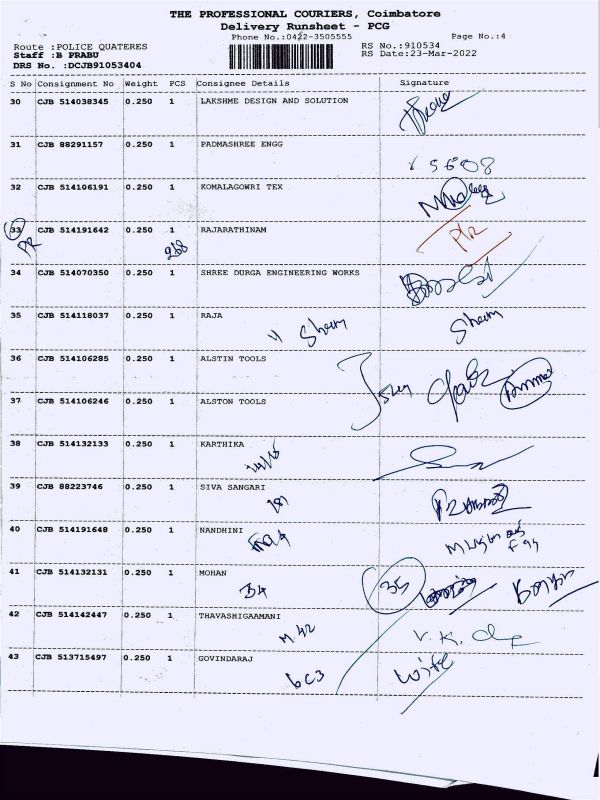 THE PROFESSIONAL COURIERS, Coimbatore
Delivery Runsheet - PCG
Phone No.:0422-3505555 Page No.:4
Route :POLICE QUATERES RS No.:910534
Staff :B PRABU RS Date:23-Mar-2022
DRS No. :DCJB91053404
S No Consignment No Weight PCS Consignee Details Signature
30 CJB 514038345 0.250 1 LAKSHME DESIGN AND SOLUTION
31 CJB 88291157 0.250 1 PADMASHREE ENGG
32 CJB 514106191 0.250 1 KOMALAGOWRI TEX
33 CJB 514191642 0.250 1 RAJARATHINAM
34 CJB 514070350 0.250 1 SHREE DURGA ENGINEERING WORKS
35 CJB 514118037 0.250 1 RAJA
36 CJB 514106285 0.250 1 ALSTIN TOOLS
37 CJB 514106246 0.250 1 ALSTON TOOLS
38 CJB 514132133 0.250 1 KARTHIKA
39 CJB 88223746 0.250 1 SIVA SANGARI
40 CJB 514191648 0.250 1 NANDHINI
41 CJB 514132131 0.250 1 MOHAN
B4 35
42 CJB 514142447 0.250 1 THAVASHIGAAMANI
M 42
43 CJB 513715497 0.250 1 GOVINDARAJ
bc3 wife